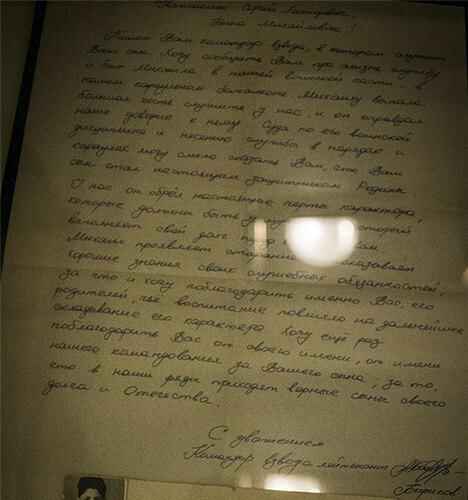 Сергей
Нина Михайловна!
Пишет Вам командир взвода, в котором служит
Ваш сын. Хочу сообщить Вам про жизнь службу
и быт Михаила в нашей воинской части, в
нашем караульном батальоне. Михаилу выпала
большая честь служить у нас, и он оправдал
наше доверие к нему. Судя по его воинской
дисциплине и несению службы в наряде и
карауле могу смело сказать Вам, что Ваш
сын стал настоящим защитником Родины
У нас он обрёл настоящие черты характера,
которые должны быть у
выполняет свой долг
Михаил проявляет оказывает
хорошие знания своих служебных обязанностей,
за что и хочу поблагодарить именно Вас, его
родителей, чьё воспитание повлияло на дальнейшее
складывание его характера. Хочу ещё раз
поблагодарить Вас от своего имени, от имени
нашего командования за Вашего сына, за то,
что в наши ряды приходят верные сыны своего
долга и Отечества.
С уважением
Командир взвода лейтенант
Борисов